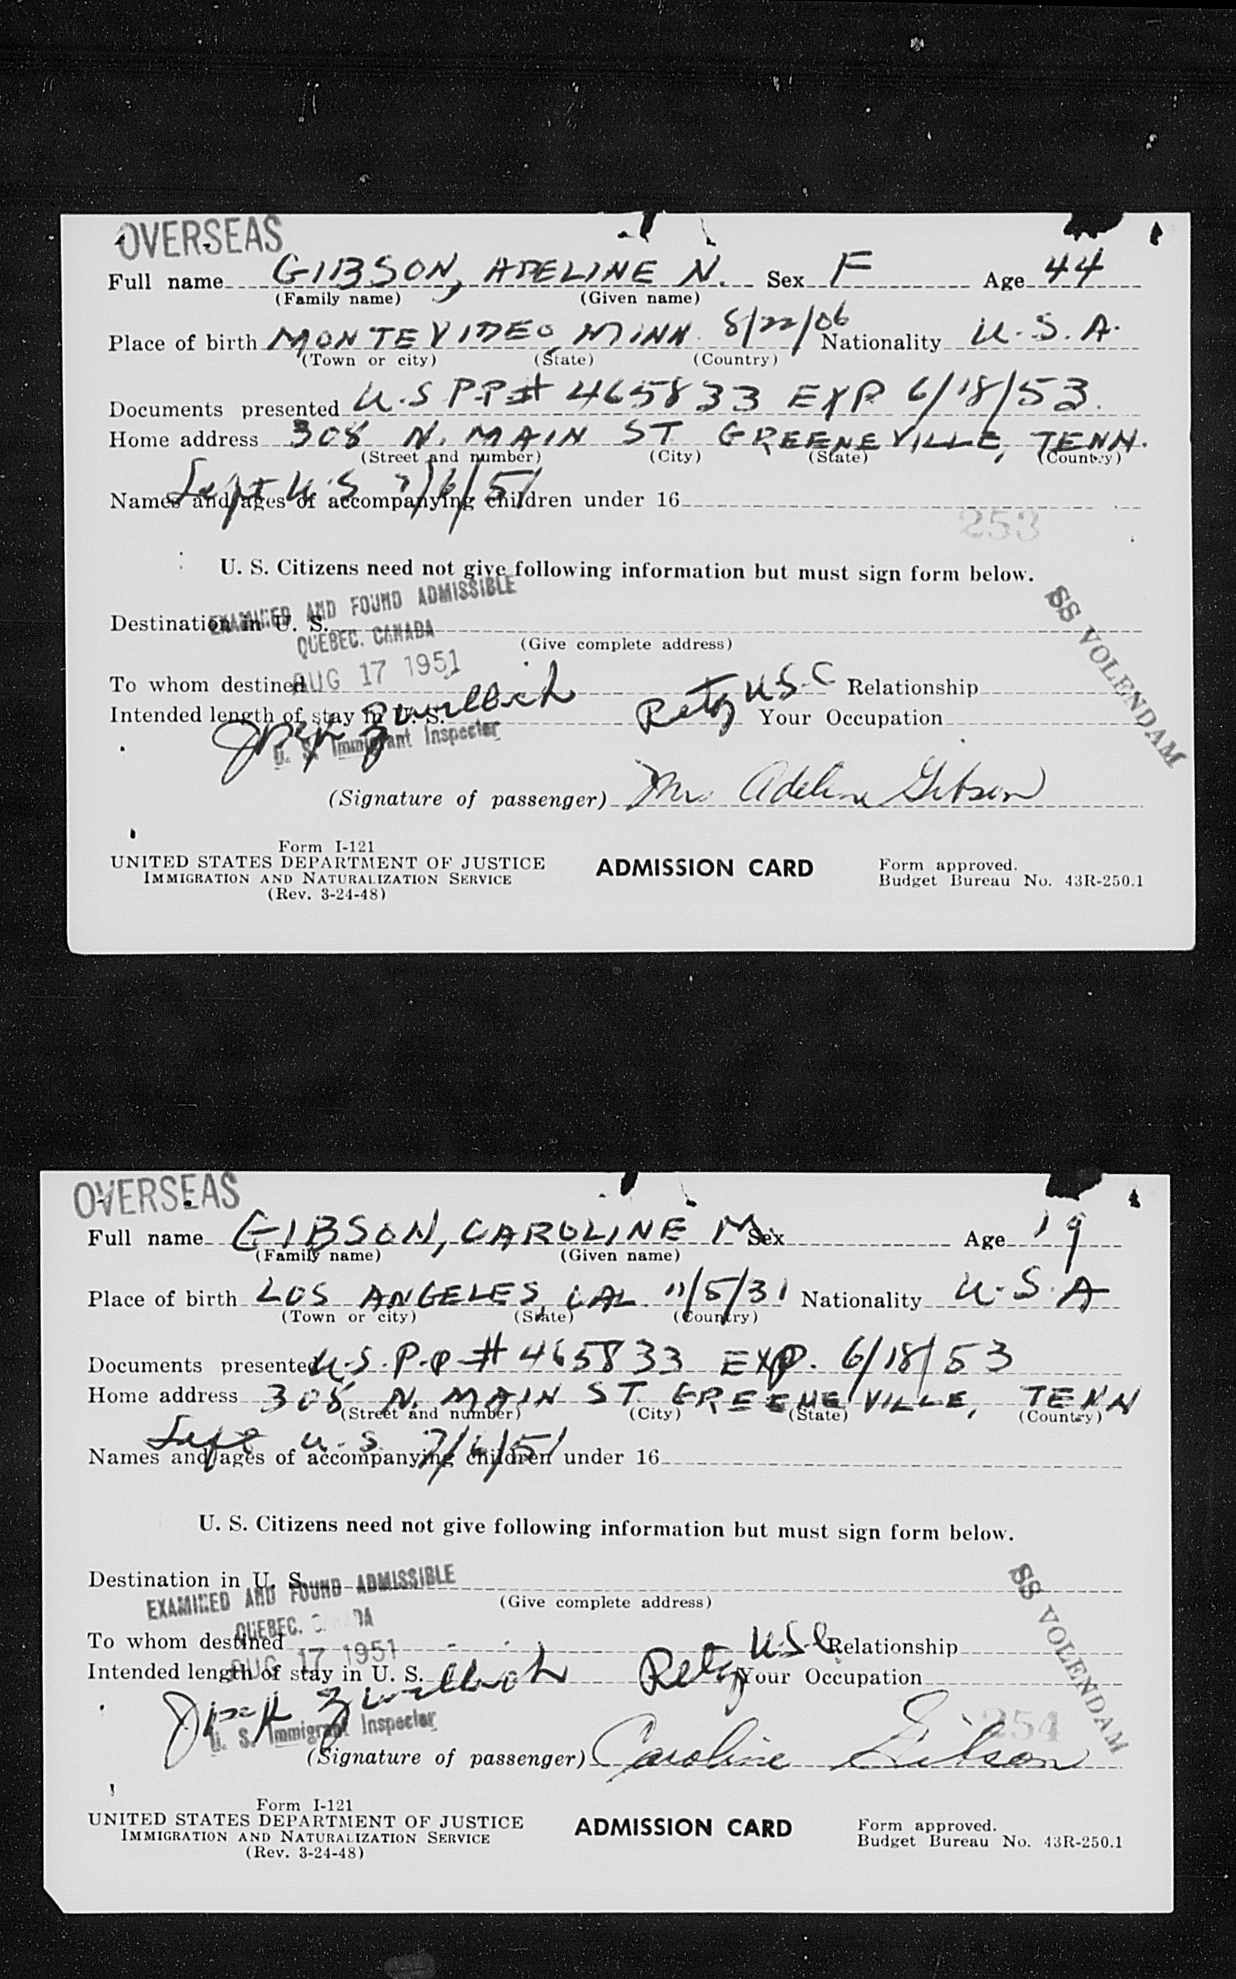 OVERSEAS
Full name GIBSON, ADELINE N. Sex F Age 44
(Family name) (Given name)
Place of birth MONTEVIDEO, MINN. 8/22/06 Nationality U.S.A.
(Town or city) (State) (Country)
Documents presented U.S P.P# 465833 EXP 6/18/53.
Home address 308 N. MAIN ST GREENEVILLE, TENN.
(Street and number) (City) (State) (Country)
Left U.S 7/6/51
Names and ages of accompanying children under 16
253
U. S. Citizens need not give following information but must sign form below.
EXAMINED AND FOUND ADMISSIBLE
Destination in U. S.
QUEBEC. CANADA
(Give complete address)
SS VOLENDAM
AUG 17 1951
To whom destined Retg USC Relationship
Intended length of stay in U. S. Your Occupation
U. S. Immigrant Inspector
(Signature of passenger) Mrs. Adeline Gibson
Form I-121
UNITED STATES DEPARTMENT OF JUSTICE
IMMIGRATION AND NATURALIZATION SERVICE
(Rev. 3-24-48)
ADMISSION CARD
Form approved.
Budget Bureau No. 43R-250.1
OVERSEAS
Full name GIBSON, CAROLINE M. Sex Age 19
(Family name) (Given name)
Place of birth LOS ANGELES CAL. 11/5/31 Nationality U.S.A
(Town or city) (State) (Country)
Documents presented U.S.P.P# 465833 EXP. 6/18/53
Home address 308 N. MAIN ST. GREENEVILLE, TENN
(Street and number) (City) (State) (Country)
Left U.S. 7/6/51
Names and ages of accompanying children under 16
U. S. Citizens need not give following information but must sign form below.
Destination in U. S.
EXAMINED AND FOUND ADMISSIBLE
(Give complete address)
SS VOLENDAM
QUEBEC.
To whom destined Retg USC Relationship
AUG 17 1951
Intended length of stay in U. S. Your Occupation
U. S. Immigrant Inspector
254
(Signature of passenger) Caroline Gibson
Form I-121
UNITED STATES DEPARTMENT OF JUSTICE
IMMIGRATION AND NATURALIZATION SERVICE
(Rev. 3-24-48)
ADMISSION CARD
Form approved.
Budget Bureau No. 43R-250.1